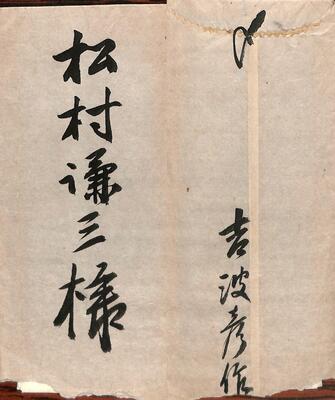 松村謙三様
〆
吉波彦作